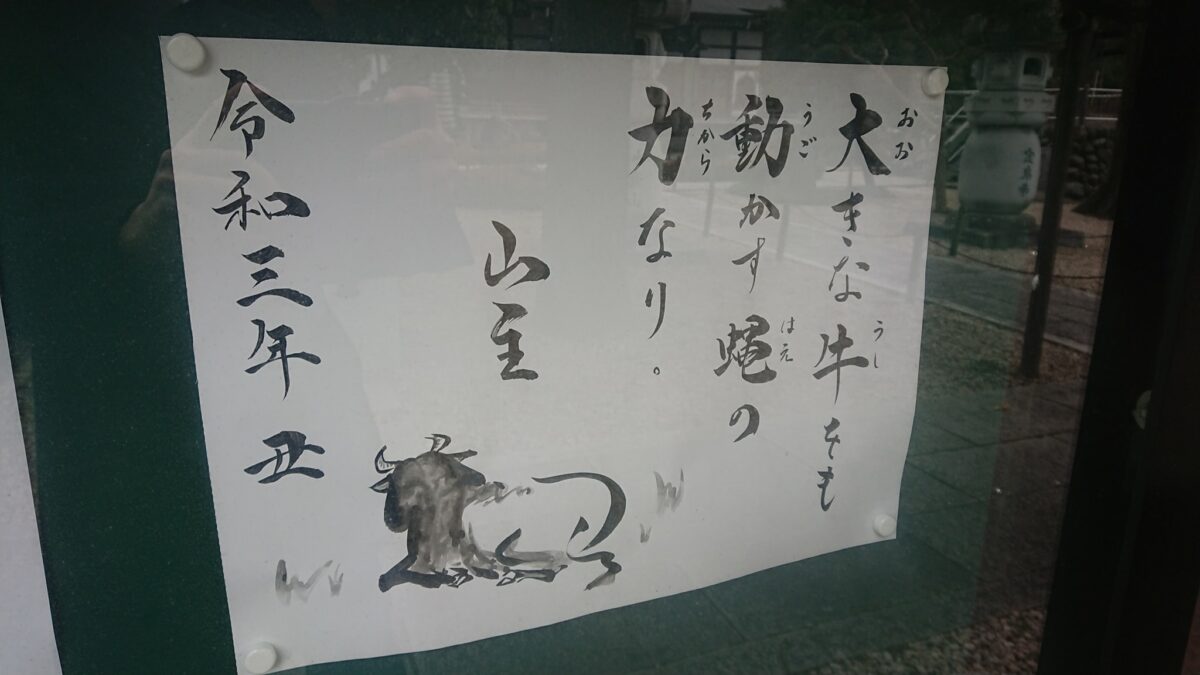 大きな牛をも
おお
うし
動かす蝿の
うご
はえ
力なり。
ちから
山主
令和三年 丑